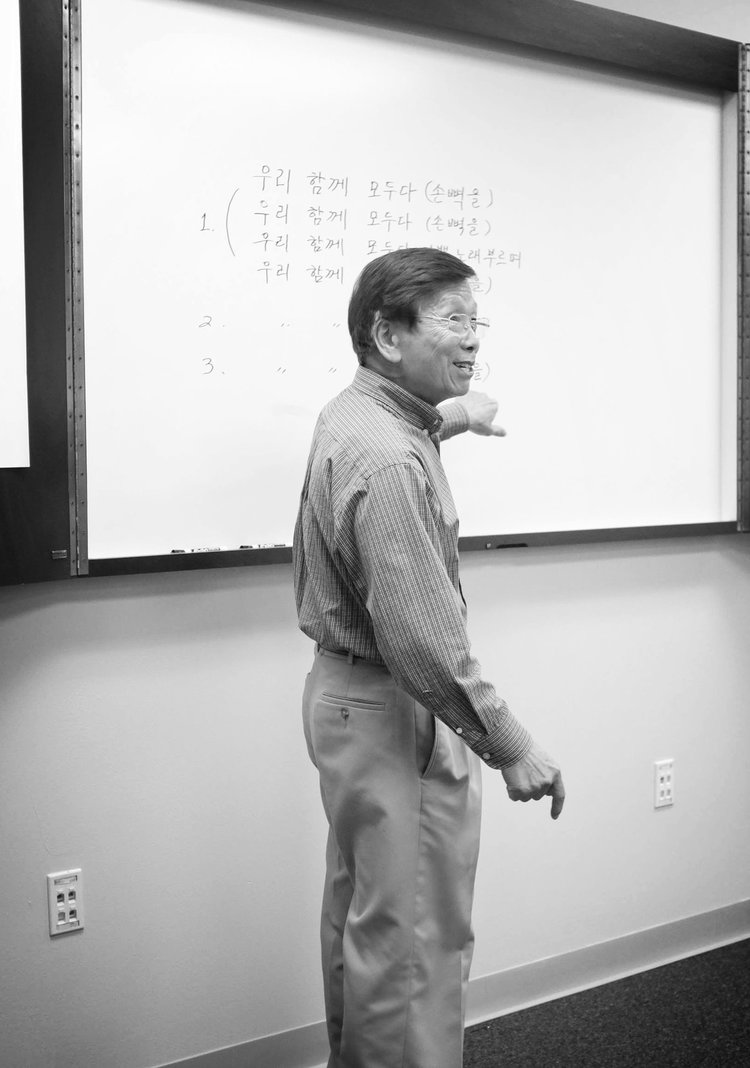 우리 함께 모두다 (손뼉을)
1. ( 우리 함께 모두다 (손뼉을)
우리 함께 모두다 노래부르며
우리 함께 을)
2. 〃 〃
3. 〃 〃 을)